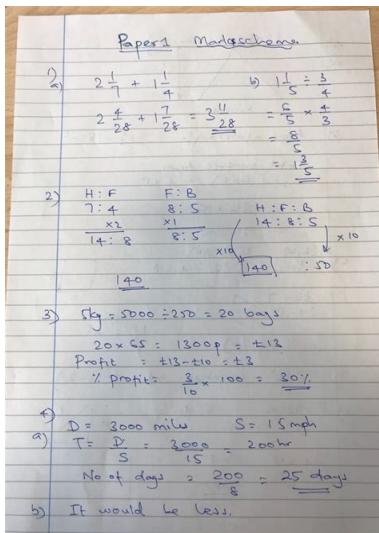 Paper 1 Markscheme
1)
a) 2 1/7 + 1 1/4 b) 1 1/5 ÷ 3/4
2 4/28 + 1 7/28 = 3 11/28 = 6/5 × 4/3
= 8/5
= 1 3/5
2) H:F F:B
7:4 8:5 H:F:B
×2 ×1 14:8:5
14:8 8:5 ×10 ×10
140 :50
140
3) 5kg = 5000 ÷ 250 = 20 bags
20 × 65 = 1300p = £13
Profit = £13 - £10 = £3
% profit = 3/10 × 100 = 30%
4)
D = 3000 miles S = 15 mph
a) T = D/S = 3000/15 = 200hr
No of days = 200/8 = 25 days
b) It would be less.